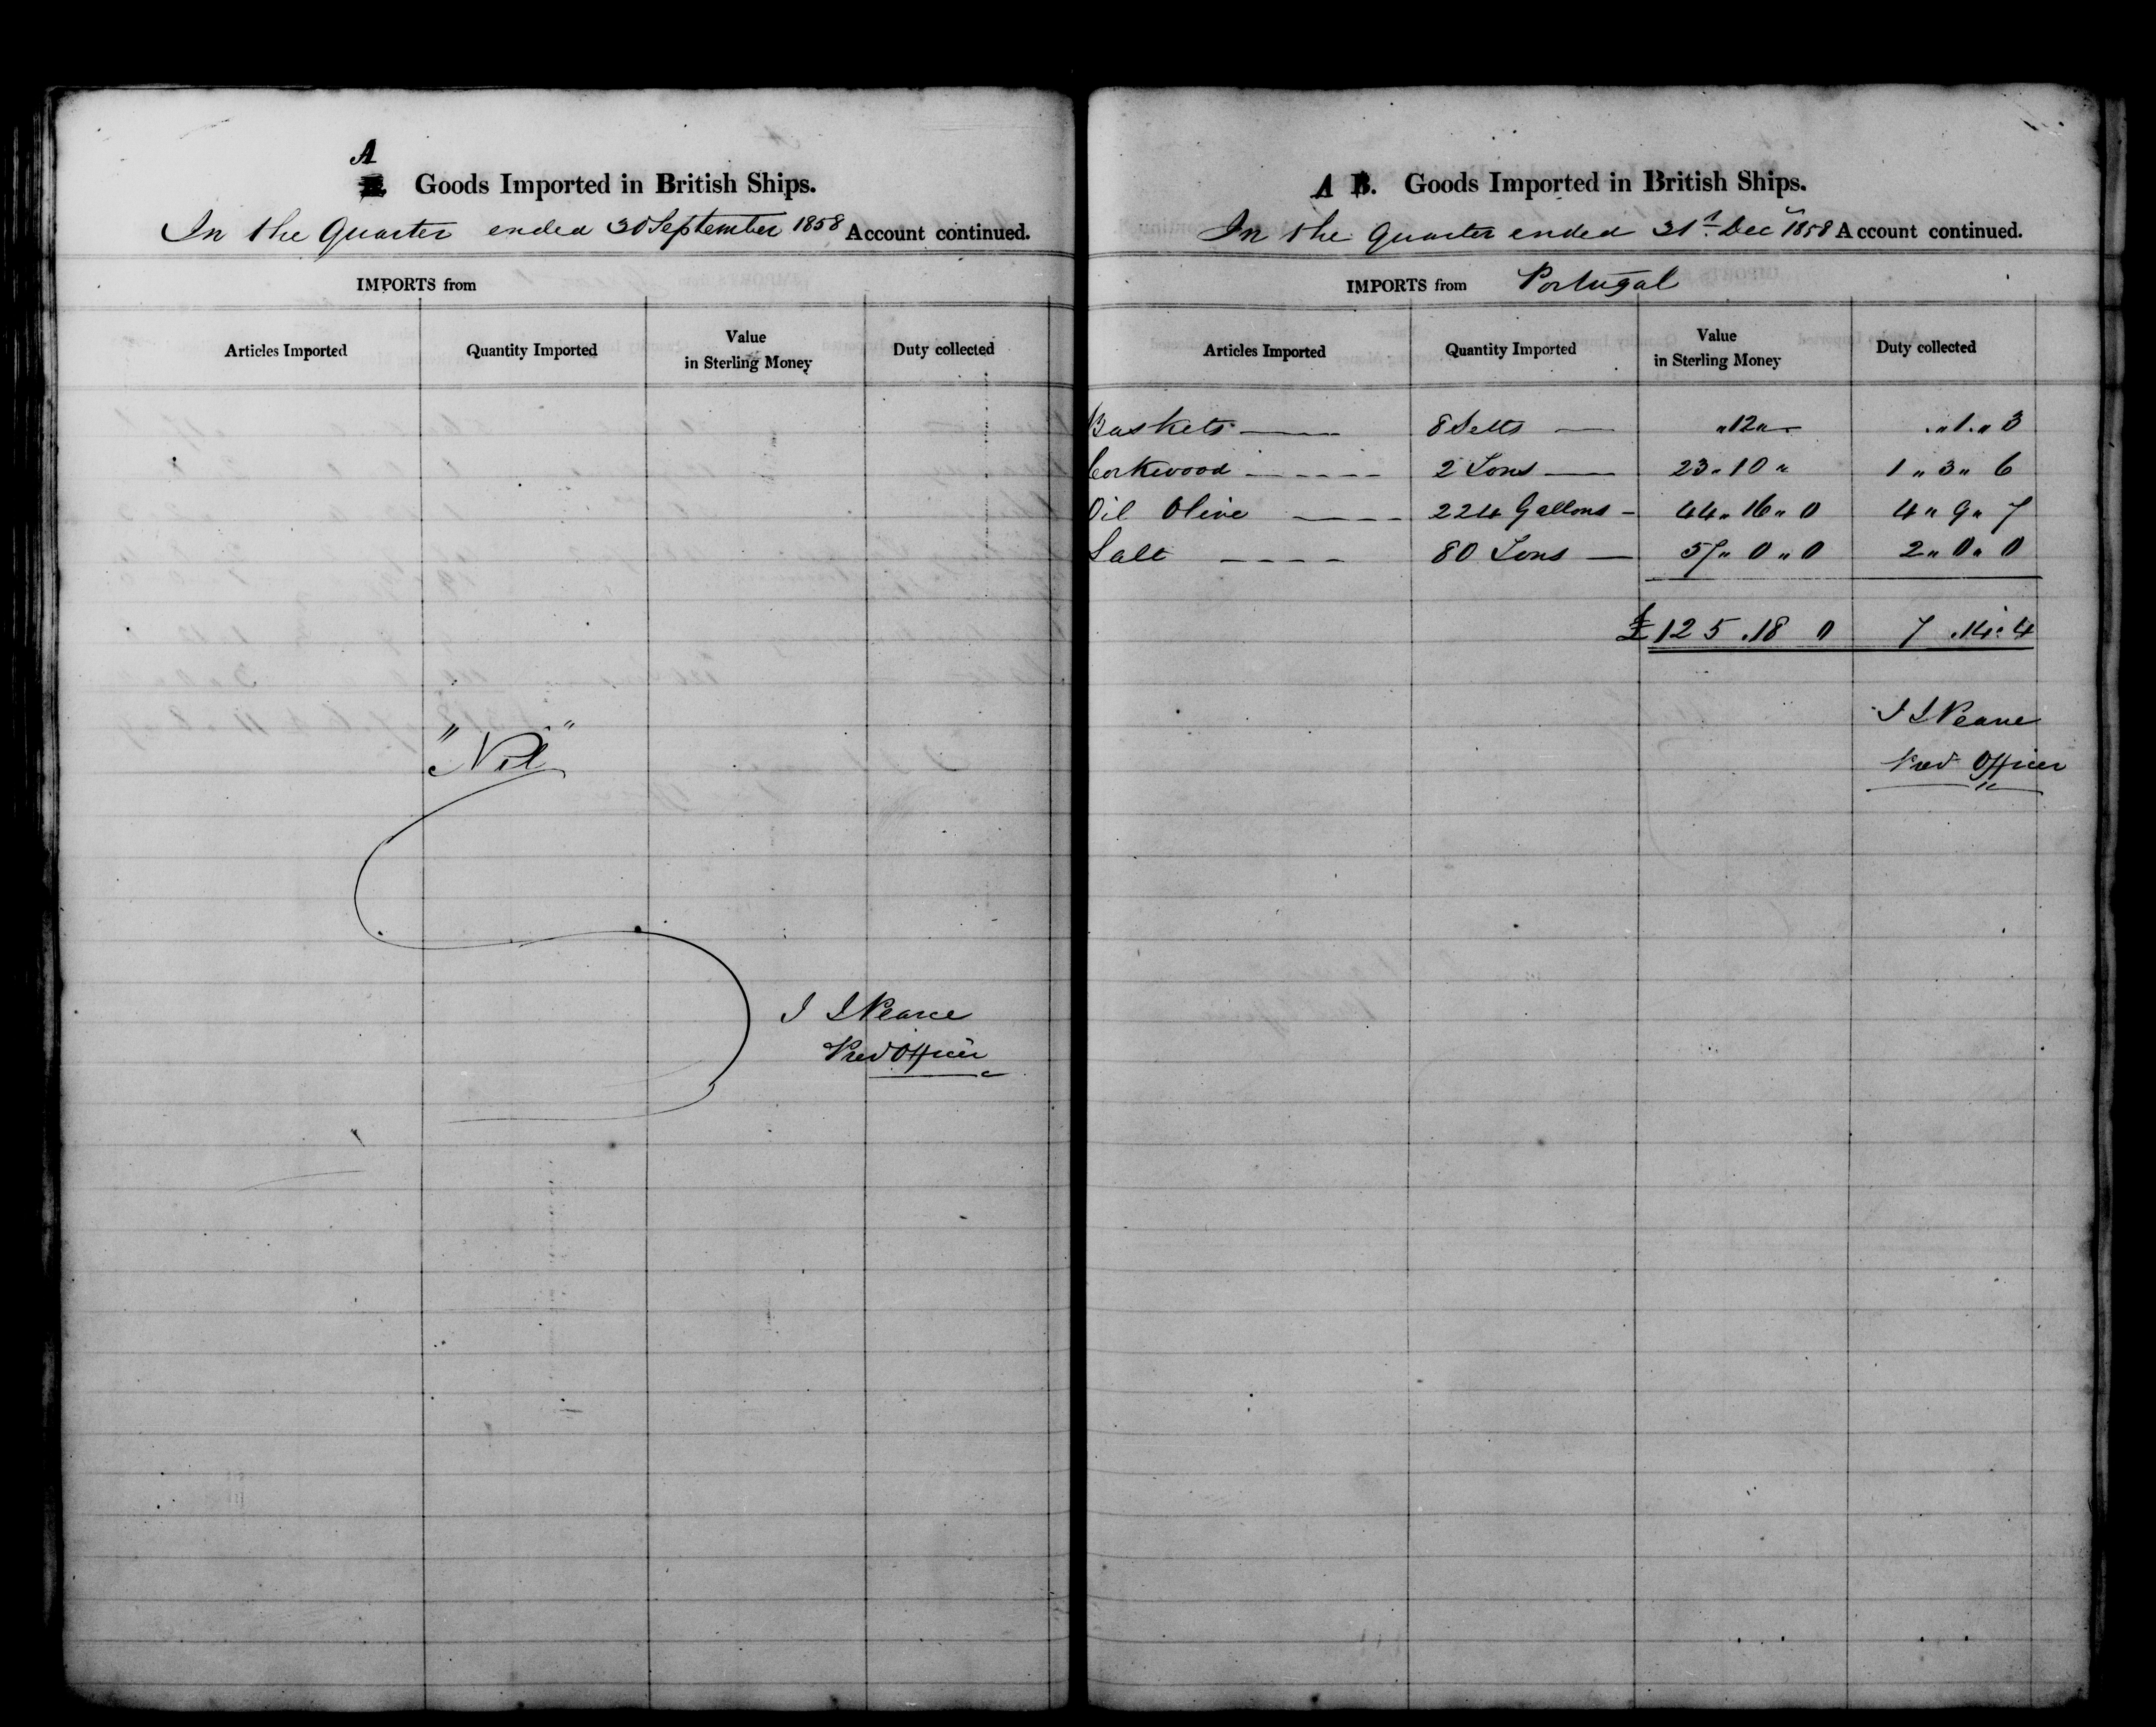 A
Goods Imported in British Ships.
In the Quarter ended 30 September 1858 Account continued.
IMPORTS from
Articles Imported Quantity Imported Value in Sterling Money Duty collected
"Nil"
J J Pearce
Prev Officer
A B. Goods Imported in British Ships.
In the Quarter ended 31st Decr 1858 Account continued.
IMPORTS from Portugal
Articles Imported Quantity Imported Value in Sterling Money Duty collected
Baskets 8 Setts — " 12 " — " 1 " 3
Corkwood 2 Tons — 23 " 10 " 1 " 3 " 6
Oil Olive 224 Gallons — 44 " 16 " 0 4 " 9 " 7
Salt 80 Tons — 57 " 0 " 0 2 " 0 " 0
£125 . 18 0 7 . 14 . 4
J J Pearce
Prev Officer